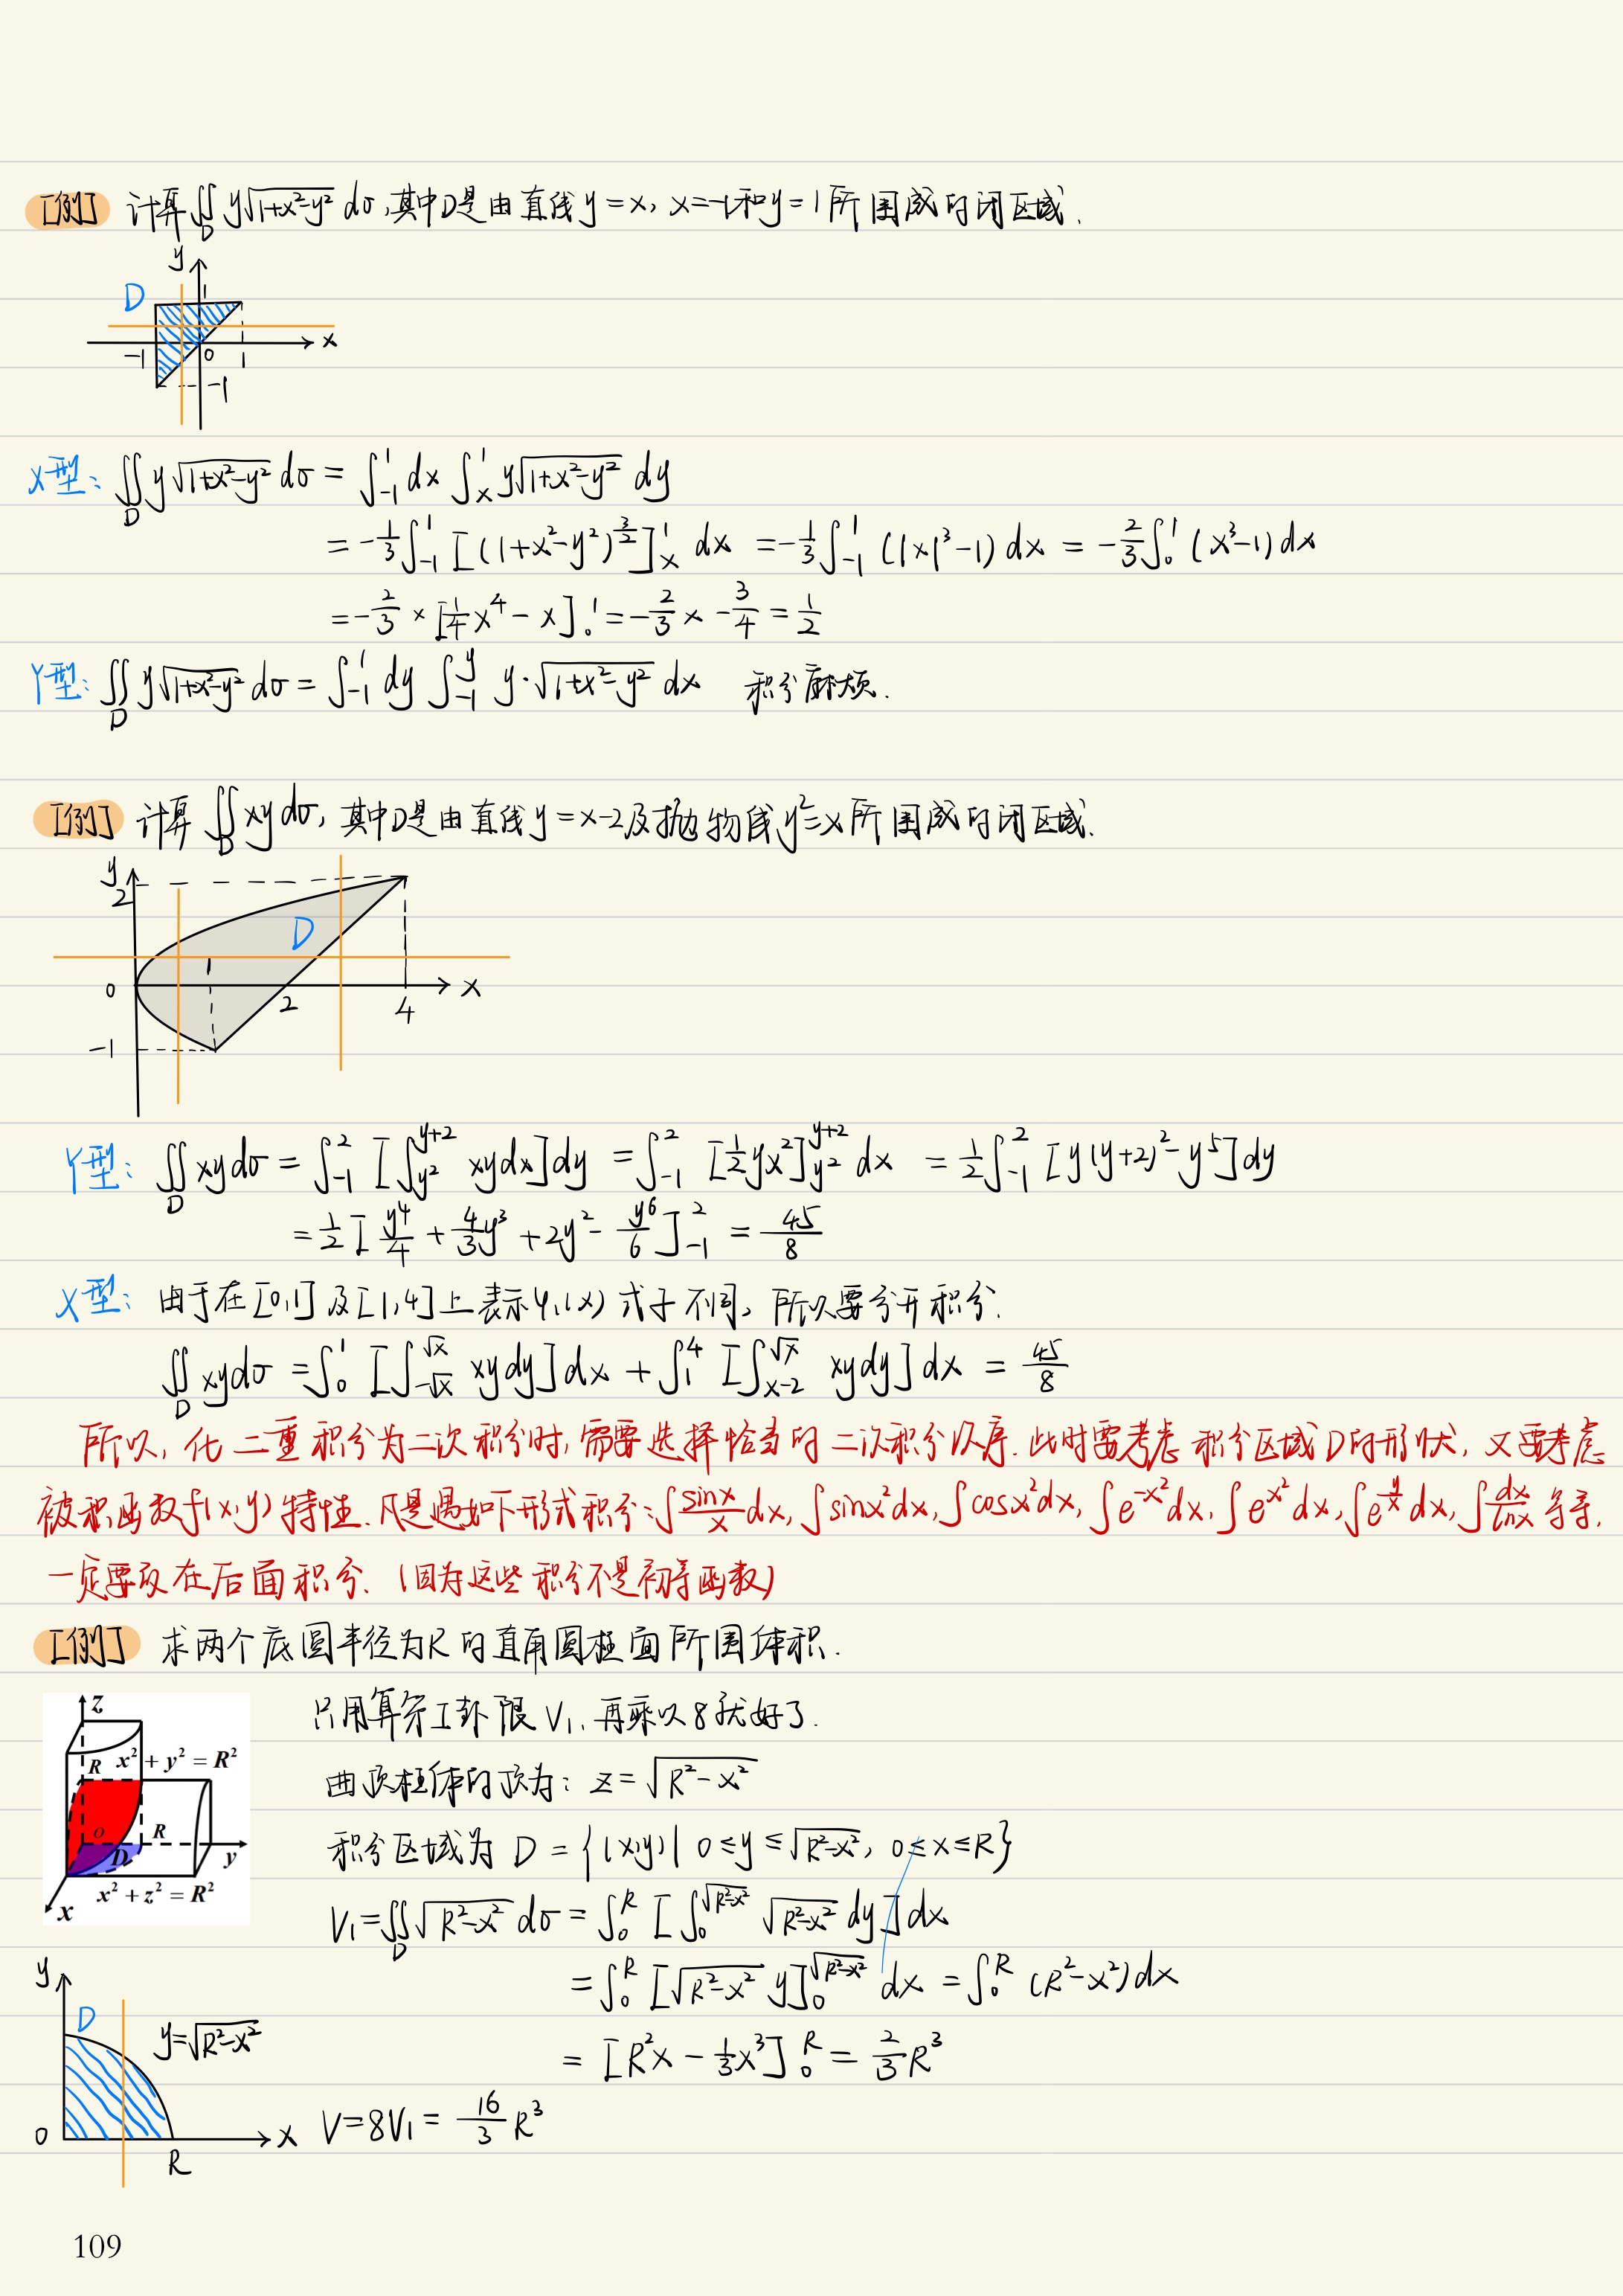 [例] 计算∬_D y√(1+x²-y²) dσ,其中D是由直线y=x, x=-1和y=1所围成的闭区域.
y
D 1
-1 0 1 x
-1
X型: ∬_D y√(1+x²-y²) dσ = ∫_{-1}^{1} dx ∫_x^1 y√(1+x²-y²) dy
= -1/3 ∫_{-1}^{1} [(1+x²-y²)^{3/2}]_x^1 dx = -1/3 ∫_{-1}^{1} (|x|³-1) dx = -2/3 ∫_0^1 (x³-1) dx
= -2/3 × [1/4 x⁴ - x]_0^1 = -2/3 × -3/4 = 1/2
Y型: ∬_D y√(1+x²-y²) dσ = ∫_{-1}^{1} dy ∫_{-1}^{y} y·√(1+x²-y²) dx 积分麻烦.
[例] 计算 ∬_D xy dσ, 其中D是由直线y=x-2及抛物线y²=x所围成的闭区域.
y
2
D
1
0 2 4 x
-1
Y型: ∬_D xy dσ = ∫_{-1}^{2} [∫_{y²}^{y+2} xy dx] dy = ∫_{-1}^{2} [1/2 yx²]_{y²}^{y+2} dx = 1/2 ∫_{-1}^{2} [y(y+2)² - y⁵] dy
= 1/2 [y⁴/4 + 4/3 y³ + 2y² - y⁶/6]_{-1}^{2} = 45/8
X型: 由于在[0,1]及[1,4]上表示φ₁(x)式子不同, 所以要分开积分.
∬_D xy dσ = ∫_0^1 [∫_{-√x}^{√x} xy dy] dx + ∫_1^4 [∫_{x-2}^{√x} xy dy] dx = 45/8
所以, 化二重积分为二次积分时, 需要选择恰当的二次积分次序. 此时要考虑积分区域D的形状, 又要考虑
被积函数f(x,y)特性. 凡是遇如下形式积分: ∫sinx/x dx, ∫sinx²dx, ∫cosx²dx, ∫e^{-x²}dx, ∫e^{x²}dx, ∫e^{y/x}dx, ∫dx/lnx 等等,
一定要放在后面积分. (因为这些积分不是初等函数)
[例] 求两个底圆半径为R的直角圆柱面所围体积.
只用算第I卦限V₁, 再乘以8就好了.
曲顶柱体的顶为: z=√(R²-x²)
积分区域为 D={(x,y)| 0≤y≤√(R²-x²), 0≤x≤R}
z
R x²+y²=R²
o R
D y
x²+z²=R²
x
V₁=∬_D √(R²-x²) dσ = ∫_0^R [∫_0^{√(R²-x²)} √(R²-x²) dy] dx
= ∫_0^R [√(R²-x²) y]_0^{√(R²-x²)} dx = ∫_0^R (R²-x²) dx
= [R²x - 1/3 x³]_0^R = 2/3 R³
V=8V₁= 16/3 R³
y
D
y=√(R²-x²)
0 R x
109